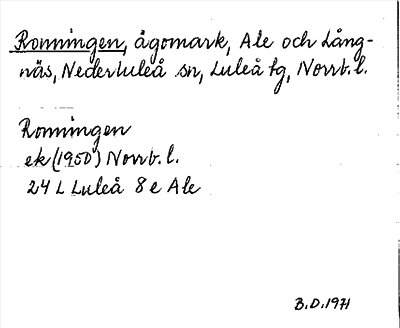 Ronningen, ägomark, Ale och Lång-
näs, Nederluleå sn, Luleå tg, Norrb. l.
Ronningen
ek (1950) Norrb. l.
24 L Luleå 8 e Ale
B.D. 1971